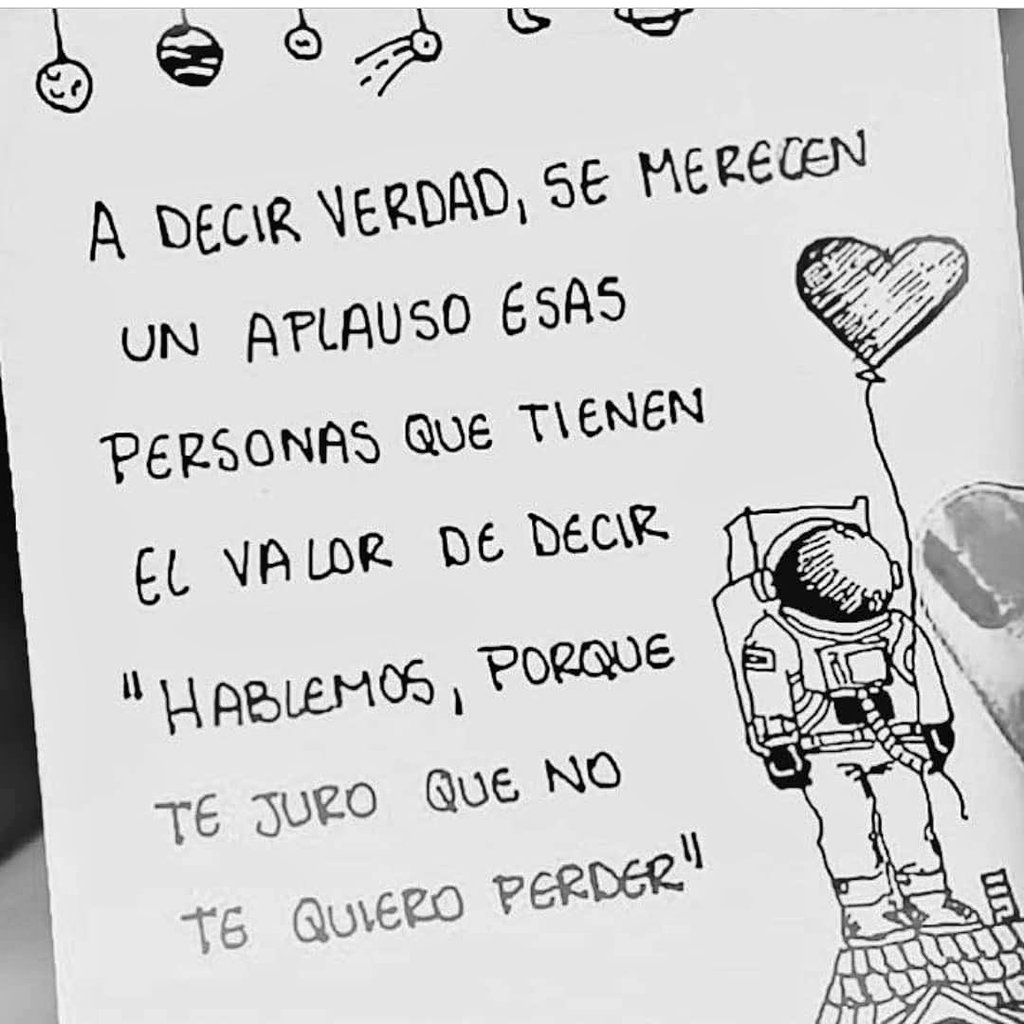 A DECIR VERDAD, SE MERECEN
UN APLAUSO ESAS
PERSONAS QUE TIENEN
EL VALOR DE DECIR
"HABLEMOS, PORQUE
TE JURO QUE NO
TE QUIERO PERDER"